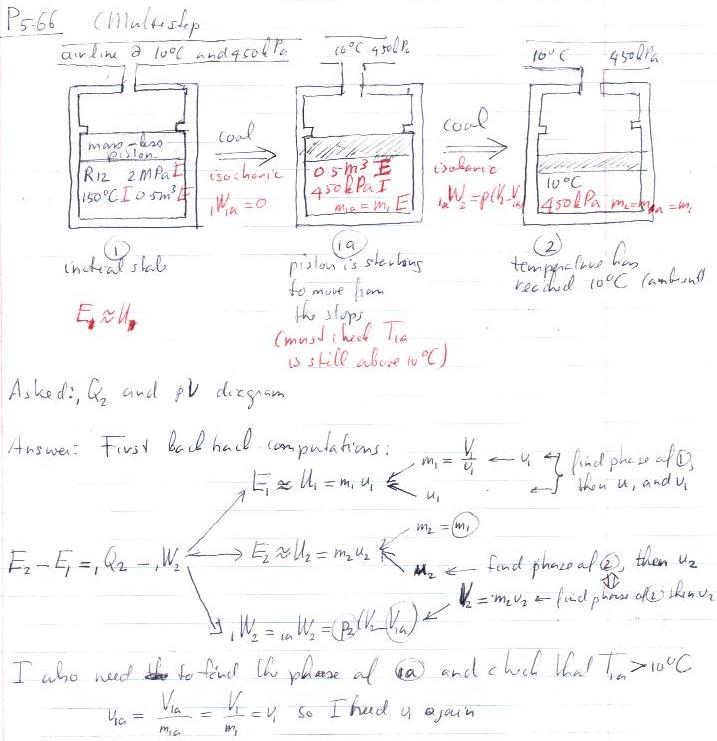 P5.66 (Multistep
air line @ 10°C and 450kPa
10°C 450kPa
10°C 450kPa
mass-less
piston
R12 2 MPa I
150°C I 0.5m³ E
cool
isochoric
₁W₁ₐ = 0
0.5m³ E
450kPa I
m₁ₐ = m₁ E
cool
isobaric
₁ₐW₂ = p(V₂-V₁ₐ)
10°C
450kPa m₂=m₁ₐ=m₁
①
initial state
E₁ ≈ U₁
1a
piston is starting
to move from
the stops
(must check T₁ₐ
is still above 10°C)
②
temperature has
reached 10°C (ambient
Asked: ₁Q₂ and pV diagram
Answer: First back hack computations:
E₁ ≈ U₁ = m₁u₁
m₁ = V₁/v₁ ← v₁
u₁
find phase of ①,
then u₁ and v₁
m₂ = m₁
E₂ - E₁ = ₁Q₂ - ₁W₂
E₂ ≈ U₂ = m₂u₂
u₂ ← find phase of ②, then u₂
V₂ = m₂v₂ ← find phase of ② then v₂
₁W₂ = ₁ₐW₂ = p₂(V₂-V₁ₐ)
I also need to find the phase of 1a and check that T₁ₐ > 10°C
v₁ₐ = V₁ₐ/m₁ₐ = V₁/m₁ = v₁ so I need v₁ again